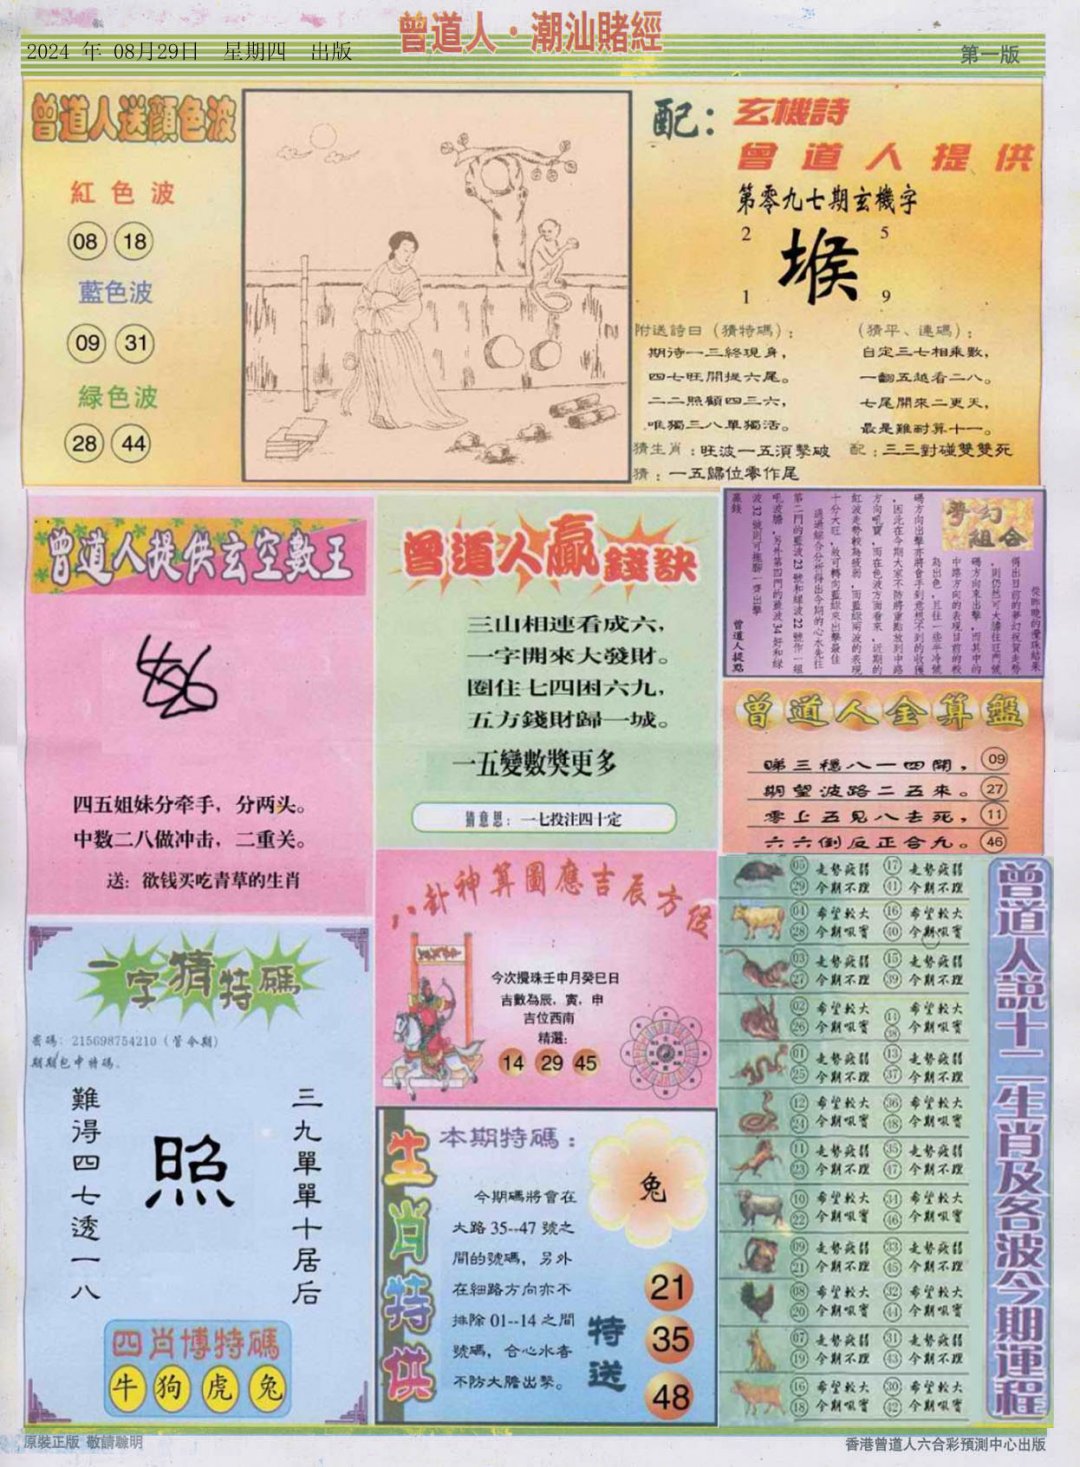 曾道人·潮汕賭經
2024 年 08月29日 星期四 出版
第一版
曾道人送顔色波
紅色波
08 18
藍色波
09 31
緑色波
28 44
配:玄機詩
曾道人提供
第零九七期玄機字
2 5
堠
1 9
附送詩曰(猜特碼):
期待一三終現身,
四七旺開提六尾。
二二照顧四三六,
唯獨三八單獨活。
(猜平、連碼):
自定三七相乘數,
一翻五越看二八。
七尾開來二更天,
最是難耐算十一。
猜生肖:旺波一五須擊破
配:三三對碰雙雙死
猜:一五歸位零作尾
曾道人提供玄空數王
四五姐妹分牵手,分两头。
中数二八做冲击,二重关。
送:欲钱买吃青草的生肖
曾道人贏錢訣
三山相連看成六,
一字開來大發財。
圈住七四困六九,
五方錢財歸一城。
一五變數獎更多
猜意思:一七投注四十定
夢幻組合
從昨晚的攪珠結果
得出目前的夢幻祝賀走勢
曾道人提點
曾道人金算盤
睇三穩八一四開, 09
期望波路二五來。 27
零上五見八去死, 11
六六倒反正合九。 46
一字猜特碼
密碼:215698754210(管令期)
期期包中特碼.
三九單單十居后
照
難得四七透一八
四肖博特碼
牛 狗 虎 兔
八卦神算圖應吉辰方位
今次攪珠壬申月癸巳日
吉數為辰,寅,申
吉位西南
精選:
14 29 45
生肖特供
本期特碼:
兔
今期碼將會在
大路35--47 號之
間的號碼,另外
在細路方向亦不
排除01--14之間
號碼,合心水者
不防大膽出擊。
特送
21
35
48
曾道人説十二生肖及各波今期運程
05 走勢疲弱 17 走勢疲弱
29 今期不理 41 今期不理
04 希望較大 16 希望較大
28 今期吼實 40 今期吼實
03 走勢疲弱 15 走勢疲弱
27 今期不理 39 今期不理
02 希望較大 14 希望較大
26 今期吼實 38 今期吼實
01 走勢疲弱 13 走勢疲弱
25 今期不理 37 今期不理
12 希望較大 36 希望較大
24 今期吼實 48 今期吼實
11 走勢疲弱 35 走勢疲弱
23 今期不理 47 今期不理
10 希望較大 34 希望較大
22 今期吼實 46 今期吼實
09 走勢疲弱 33 走勢疲弱
21 今期不理 45 今期不理
08 希望較大 32 希望較大
20 今期吼實 44 今期吼實
07 走勢疲弱 31 走勢疲弱
19 今期不理 43 今期不理
16 希望較大 30 希望較大
18 今期吼實 42 今期吼實
原裝正版 敬請聯明
香港曾道人六合彩預測中心出版